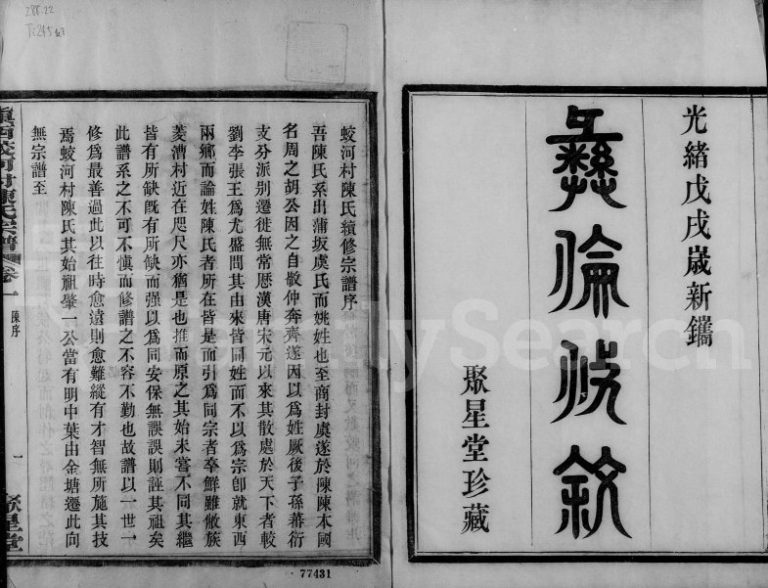 光緒戊戌歲新鐫
彝倫攸敘
聚星堂珍藏
288.22
蛟河村陳氏續修宗譜序
吾陳氏系出蒲坂虞氏而姚姓也至商封虞遂於陳陳本國
名周之胡公因之自敬仲奔齊遂因以為姓厥後子孫蕃衍
支分派別遷徙無常歷漢唐宋元以來其散處於天下者較
劉李張王為尤盛問其由來皆同姓而不以為宗卽就東西
兩鄉而論姓陳氏者所在皆是而引為同宗者卒鮮雖敝族
菱漕村近在咫尺亦猶是也推而原之其始未嘗不同其繼
皆有所缺旣有所缺而强以為同安保無誤誤則誣其祖矣
此譜系之不可不慎而修譜之不容不勤也故譜以一世一
修為最善過此以往時愈遠則愈難縱有才智無所施其技
焉蛟河村陳氏其始祖肇一公當有明中葉由金塘遷此向
無宗譜至
鎮西蛟河村陳氏宗譜 卷一 陳序 一 聚星堂
77431